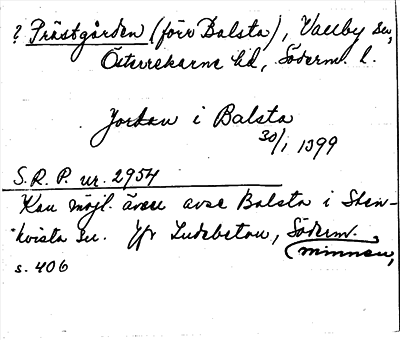 ? Prästgården (förr Balsta), Vallby sn,
Österrekarne hd, Söderm. l.
Jordan i Balsta
30/1 1399
S.R.P. nr. 2954
Kan möjl. även avse Balsta i Sten-
kvista sn. Jfr Ludebetan, Söderm.
minnen,
s. 406